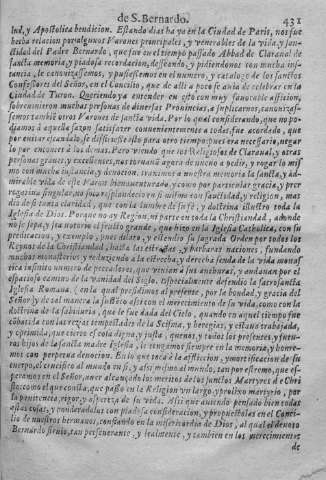 de S. Bernardo. 431
lud, y Apostolica bendicion. Estando dias ha yo en la Ciudad de Paris, nos fue
hecha relacion por algunos Varones principales, y venerables de la vida, y san-
ctidad del Padre Bernardo, que fue en el tiempo passado Abbad de Claraual de
sancta memoria, y piadosa recordacion, desseando, y pidiendonos con mucha instan-
cia, le canonizassemos, y pusiessemos en el numero, y catalogo de los sanctos
Confessores del Señor, en el Concilio, que de alli a poco se auia de celebrar en la
Ciudad de Turon. Queriendo ya entender en esto con muy fauorable afficion,
sobreuinieron muchas personas de diuersas Prouincias, a suplicarnos, canonizasse-
mos tambiẽ otros Varones de sancta vida. Por lo qual considerando, que no po-
diamos a aquella sazon satisfazer conuenientemente a todos, fue acordado, que
por euitar escandalo, se difiriesse esto para otro tiempo, pues era necessario, negar
lo por entonces a los demas. Pero viendo, que los Religiosos de Claraual, y otras
personas graues, y excellentes, nos tornauã agora de nueuo a pedir, y rogar lo mis
mo con mucha instancia, y deuocion, traximos a nuestra memoria la sancta, y ad-
mirable vida de este Varon bienauenturado, y como por particular gracia, y prer
rogatiua singular, no solo resplandecio en si mismo con sanctidad, y religion, mas
aun con la lumbre de su fe, y doctrina illustro toda la
Iglesia de Dios. Porque no ay Region, ni parte en toda la Christiandad, adonde
no se sepa, y sea notorio el fructo grande, que hizo en la Iglesia Catholica, con su
predicacion, y exemplo, pues dilato, y estendio su sagrada Orden por todos los
Reynos de la Christiandad, hasta las estrañas, y barbaras naciones, fundando
muchos monasterios, y reduziendo a la estrecha, y derecha senda de la vida monas
tica infinito numero de peccadores, que viuian a sus anchuras, y andauan por el
espacioso camino de la vanidad del Siglo. Especialmente defendio la sacrosancta
Iglesia Romana (en la qual presidimos al presente, por la bondad, y gracia del
Señor) y de tal manera la sustẽto assi con el merecimiento de su vida, como con la
doctrina de la sabiduria, que le fue dada del Cielo, quando en aquel tiempo fue
cõbatida con las rezias tempestades de la Scisma, y heregias, y estaua trabajada,
y oprimida, que cierto es cosa digna, y justa, q̃ nos, y todos los presentes, y futu-
ros hijos de la sancta madre Iglesia, le tengamos siempre en la memoria, y honre-
mos con perpetua deuocion. En lo que toca a la affliccion, y mortificacion de su
cuerpo, el crucifico al mundo en si, y assi mismo al mundo, tan por estremo, que es-
peramos en el Señor, auer alcançado los meritos de los sanctos Martyres de Chri
sto: como el que consta, que passo en la Religion vn largo, y prolixo martyrio, por
la penitencia, rigor, y aspereza de su vida. Assi que auiendo pensado bien todas
estas cosas, y consideradolas con piadosa consideracion, y propuestolas en el Conci-
lio de nuestros hermanos, confiando en la misericordia de Dios, al qual el deuoto
Bernardo siruio, tan perseuerante, y lealmente, y tambien en los merecimientos
de